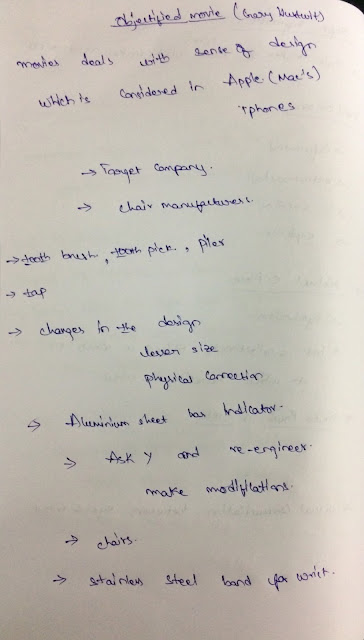 Objectified movie (Gary Hustwit)
movies deals with sense of design
which is considered in Apple (Mac's)
Iphones
→ Target Company.
→ chair manufacturers.
→ tooth brush, tooth pick, plier
→ tap
→ changes in the design
lever size
physical connection
→ Aluminium sheet has Indicator.
→ Ask y and re-engineer.
make modifications.
→ chairs.
→ stainless steel band for wrist.